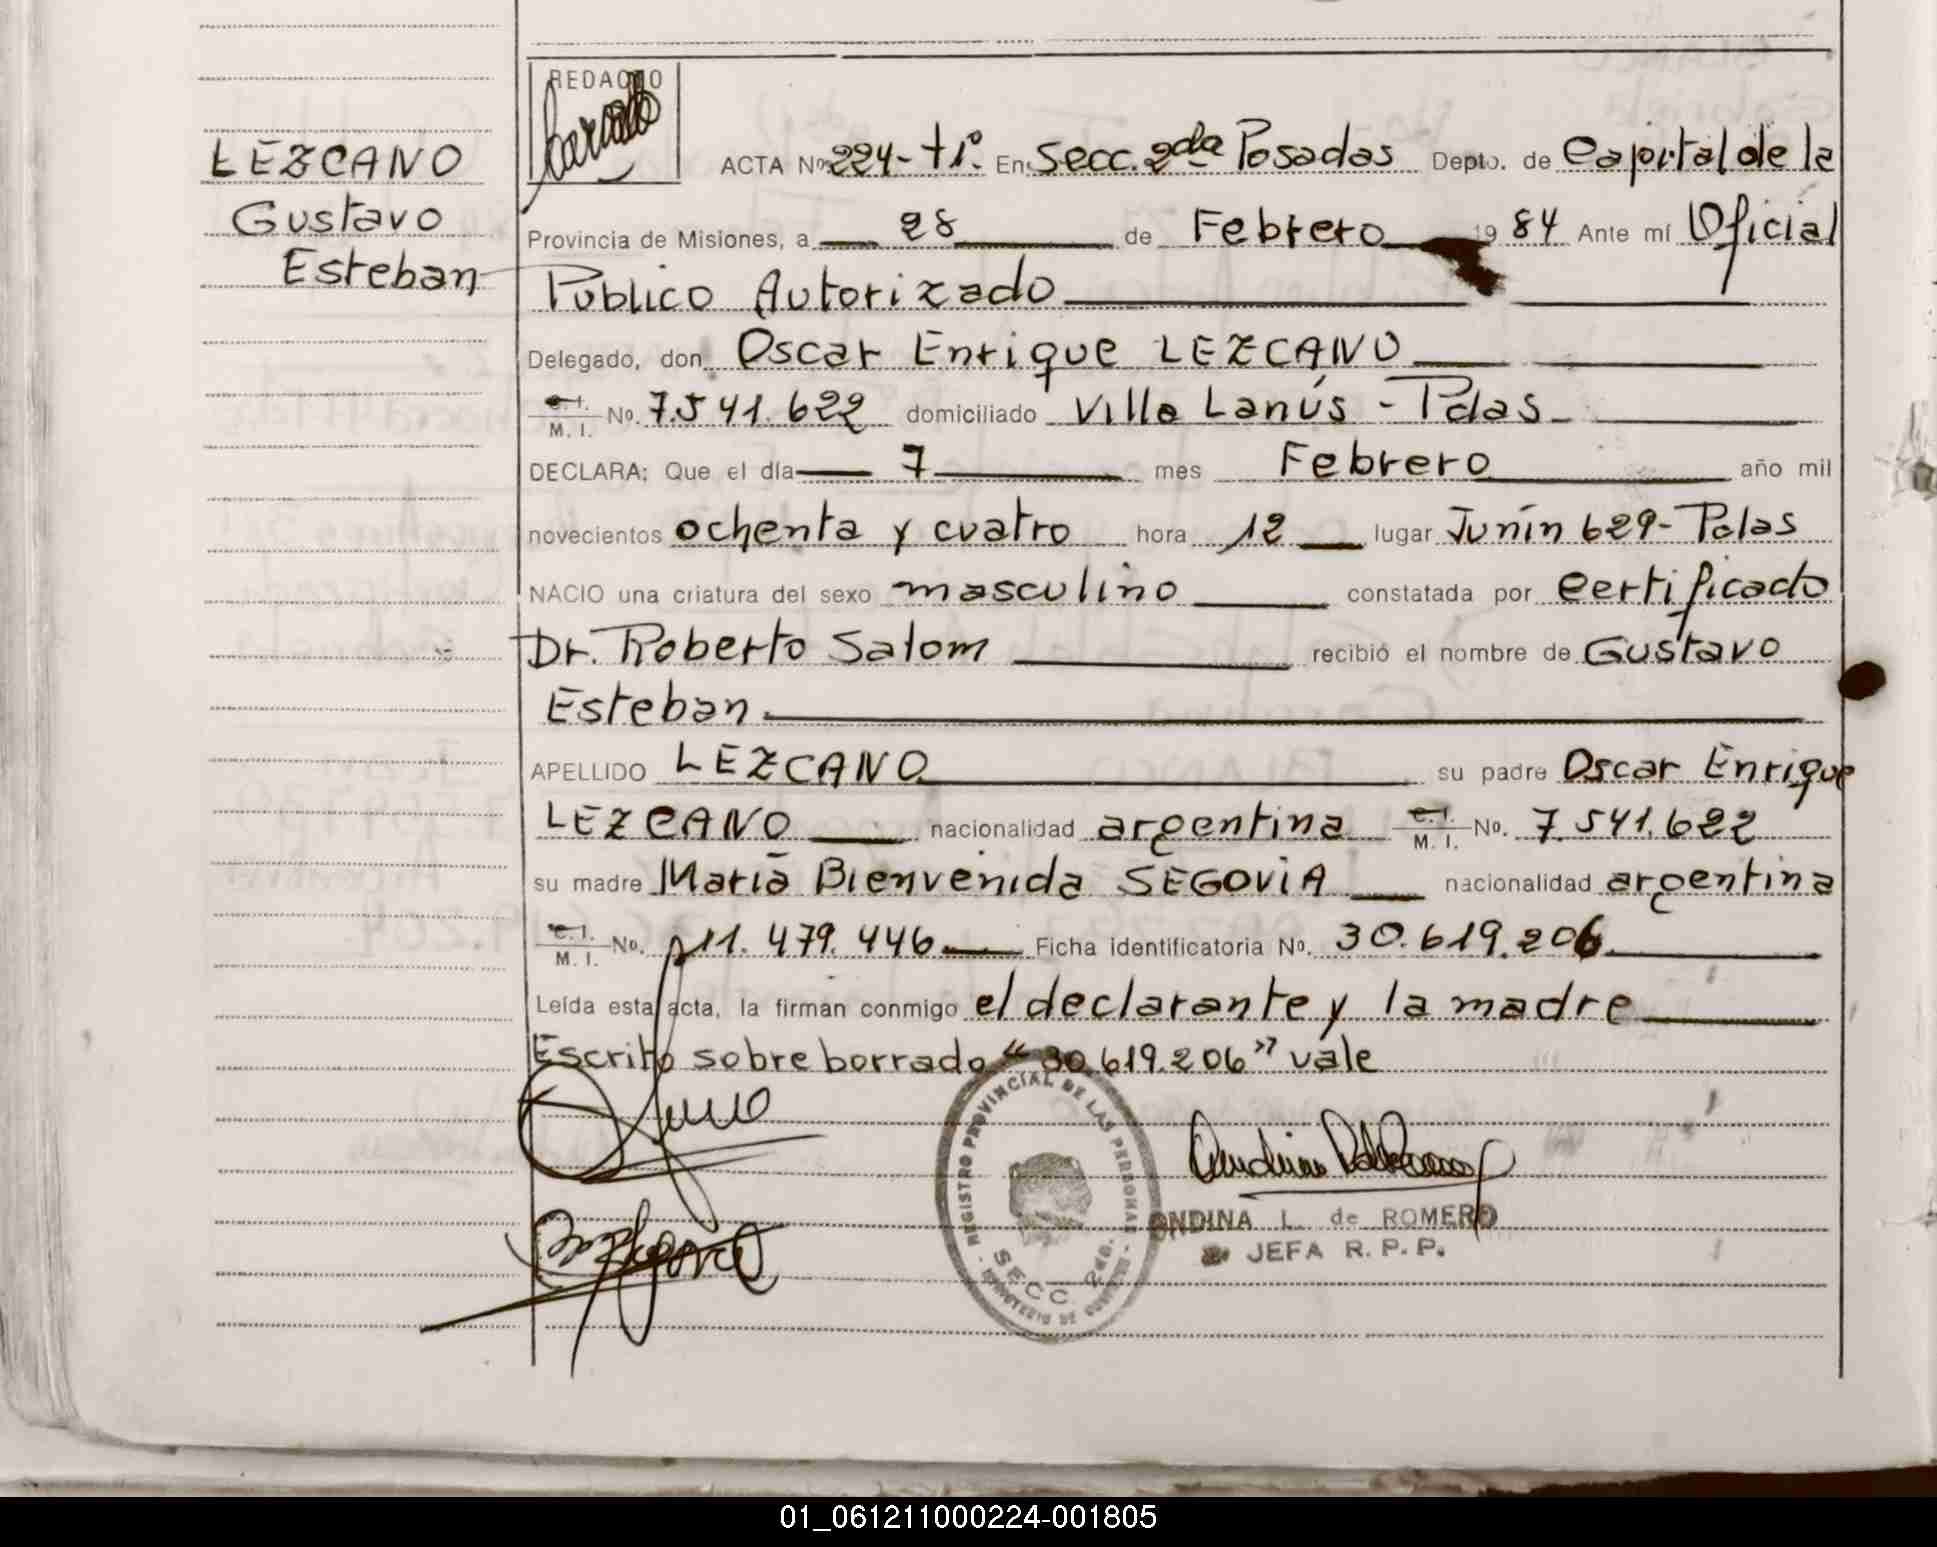 REDACTO
LEZCANO
Gustavo
Esteban
ACTA Nº 224-tIº. En Secc. 2da Posadas Depto. de Capital de la
Provincia de Misiones, a 28 de Febrero 1984 Ante mí Oficial
Público Autorizado
Delegado, don Oscar Enrique LEZCANO
C.I. M.I. No. 7.541.622 domiciliado Villa Lanús - Pdas
DECLARA; Que el día 7 mes Febrero año mil
novecientos ochenta y cuatro hora 12 lugar Junín 629- Pdas
NACIO una criatura del sexo masculino constatada por certificado
Dr. Roberto Salom recibió el nombre de Gustavo
Esteban
APELLIDO LEZCANO su padre Oscar Enrique
LEZCANO nacionalidad argentina C.I. M.I. No. 7.541.622
su madre María Bienvenida SEGOVIA nacionalidad argentina
C.I. M.I. No. 11.479.446 Ficha identificatoria No. 30.619.206
Leída esta acta, la firman conmigo el declarante y la madre
Escrito sobre borrado "30.619.206" vale
REGISTRO PROVINCIAL DE LAS PERSONAS
SECC. 2da.
MINISTERIO DE GOBIERNO
ONDINA L. de ROMERO
JEFA R.P.P.
01_061211000224-001805